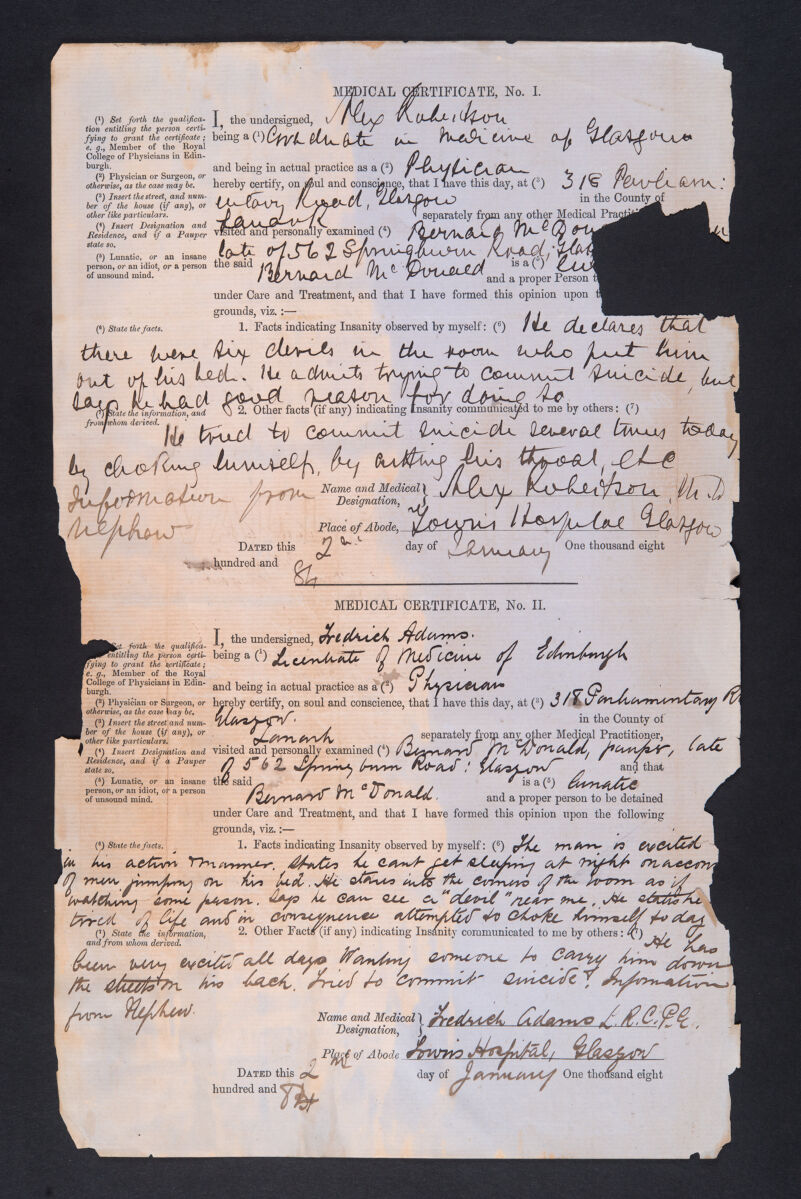 MEDICAL CERTIFICATE, No. I.
(1) Set forth the qualifica-
tion entitling the person certi-
fying to grant the certificate;
e. g., Member of the Royal
College of Physicians in Edin-
burgh.
(2) Physician or Surgeon, or
otherwise, as the case may be.
(3) Insert the street, and num-
ber of the house (if any), or
other like particulars.
(4) Insert Designation and
Residence, and if a Pauper
state so.
(5) Lunatic, or an insane
person, or an idiot, or a person
of unsound mind.
I, the undersigned, Alex Robertson
being a (1) Graduate in Medicine of Glasgow
and being in actual practice as a (2) Physician
hereby certify, on soul and conscience, that I have this day, at (3) 318 Parliam:
entary Road, Glasgow in the County of
Lanark separately from any other Medical Practiti
visited and personally examined (4) Bernard McDon
late of 562 Springburn Road, Glas
the said Bernard McDonald is a (5) Lu
and a proper Person t
under Care and Treatment, and that I have formed this opinion upon t
grounds, viz. :—
(6) State the facts.
1. Facts indicating Insanity observed by myself: (6) He declares that
there were six devils in the room who put him
out of his bed. He admits trying to commit suicide, but
says he had good reason for doing so
(7) State the information, and
from whom derived.
2. Other facts (if any) indicating Insanity communicated to me by others: (7)
He tried to commit suicide several times today
by choking himself, by cutting his throat, etc
Information from
Nephew
Name and Medical Designation, Alex Robertson, M.D
Place of Abode, Towns Hospital Glasgow
DATED this 2nd day of January One thousand eight
hundred and 84
MEDICAL CERTIFICATE, No. II.
Set forth the qualifica-
entitling the person certi-
fying to grant the certificate;
e. g., Member of the Royal
College of Physicians in Edin-
burgh.
(2) Physician or Surgeon, or
otherwise, as the case may be.
(3) Insert the street and num-
ber of the house (if any), or
other like particulars.
(4) Insert Designation and
Residence, and if a Pauper
state so.
(5) Lunatic, or an insane
person, or an idiot, or a person
of unsound mind.
I, the undersigned, Fredrick Adams.
being a (1) Licentiate of Medicine of Edinburgh
and being in actual practice as a (2) Physician
hereby certify, on soul and conscience, that I have this day, at (3) 318 Parliamentary R
Glasgow. in the County of
Lanark separately from any other Medical Practitioner,
visited and personally examined (4) Bernard McDonald, pauper, late
of 562 Springburn Road: Glasgow and that
the said Bernard McDonald. is a (5) lunatic
and a proper person to be detained
under Care and Treatment, and that I have formed this opinion upon the following
grounds, viz. :—
(6) State the facts.
1. Facts indicating Insanity observed by myself: (6) The man is excited
in his action & manner. States he cant get sleeping at night on accoun
of men jumping on his bed. He stares into the corners of the room as if
watching some person. Says he can see a "devil" near me. He states he
tired of life and in consequence attempted to choke himself to day
(7) State the information,
and from whom derived.
2. Other Facts (if any) indicating Insanity communicated to me by others: (7) He has
been very excited all day. Wanting someone to carry him down
the streets on his back. Tried to commit suicide. Information
from Nephew.
Name and Medical Designation, Fredrick Adams L.R.C.P.E.
Place of Abode Towns Hospital, Glasgow
DATED this 2nd day of January One thousand eight
hundred and 84